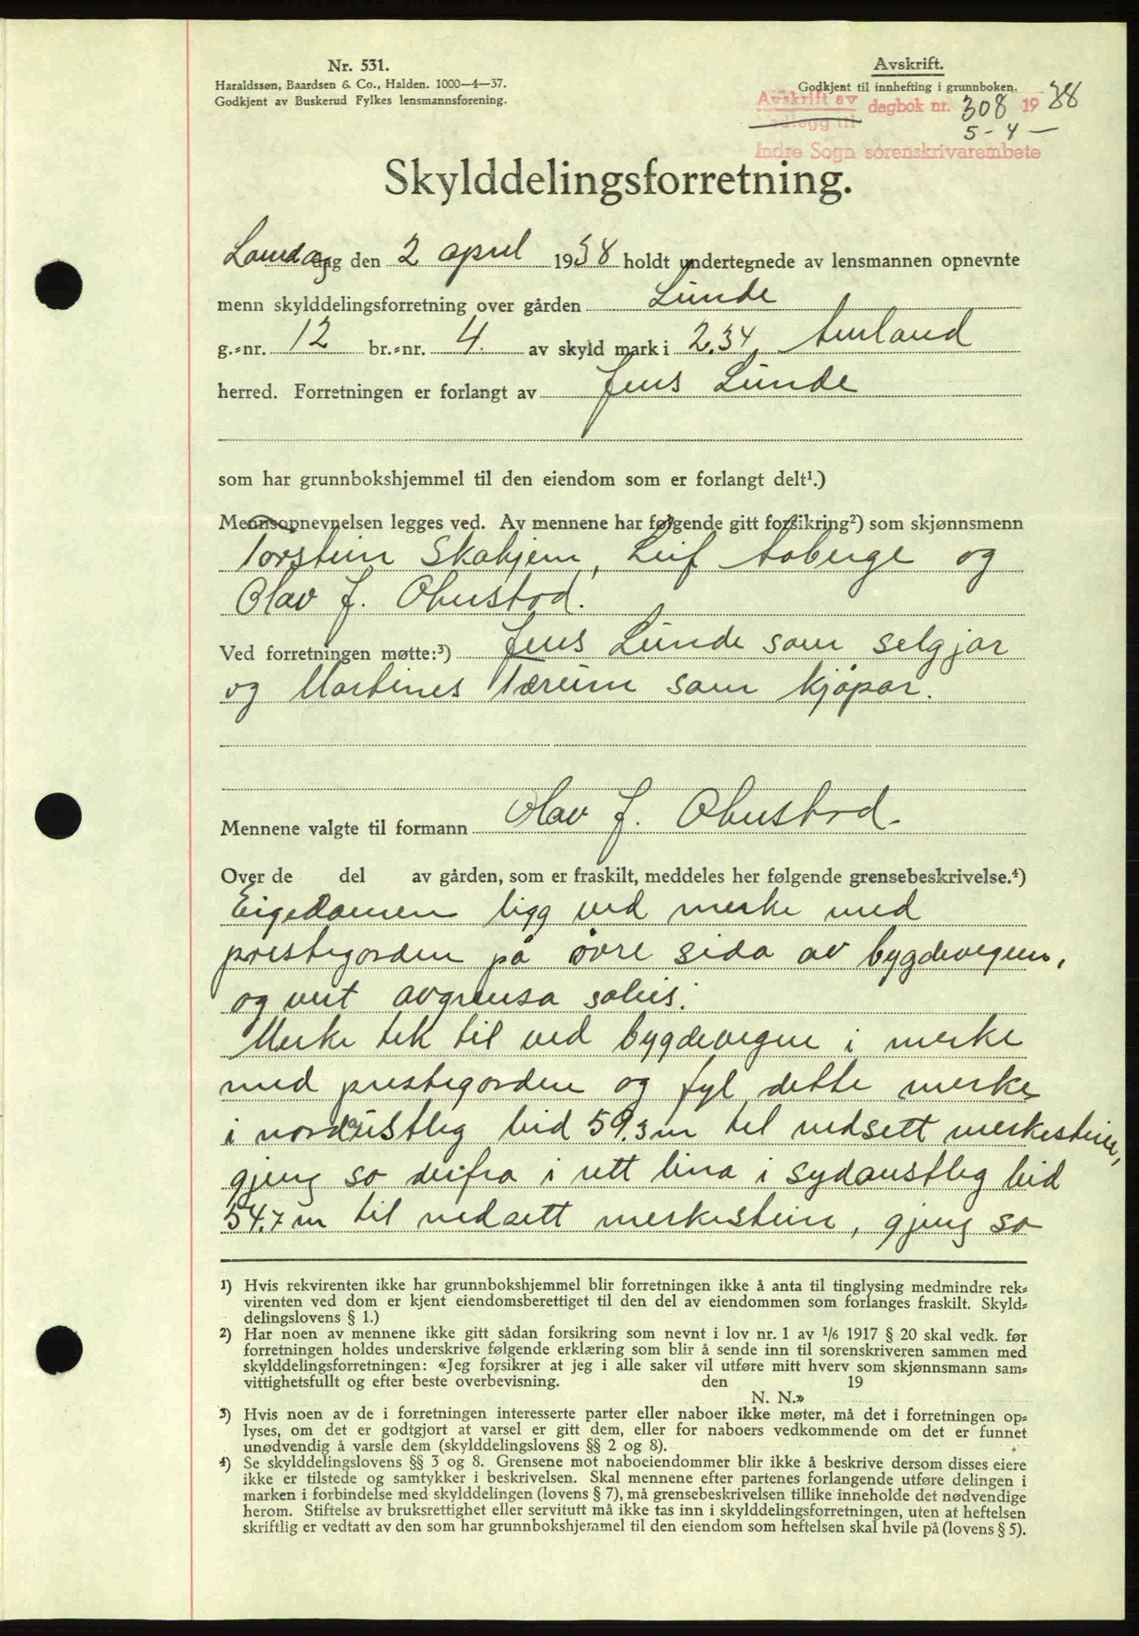 Nr. 531.
Haraldssøn, Baardsen & Co., Halden. 1000—4—37.
Godkjent av Buskerud Fylkes lensmannsforening.
Avskrift.
Godkjent til innhefting i grunnboken.
Avskrift av dagbok nr. 308 1938
Vedlegg til 5-4-
Indre Sogn sorenskrivarembete
Skylddelingsforretning.
Laurdag den 2 april 1938 holdt undertegnede av lensmannen opnevnte
menn skylddelingsforretning over gården Lunde
g.-nr. 12 br.-nr. 4. av skyld mark i 2.34, Aurland
herred. Forretningen er forlangt av Jens Lunde
som har grunnbokshjemmel til den eiendom som er forlangt delt¹.)
Mennsopnevnelsen legges ved. Av mennene har følgende gitt forsikring²) som skjønnsmenn
Torstein Skahjem, Leif Aaberge og
Olav J. Ohnstad.
Ved forretningen møtte:³) Jens Lunde som selgjar
og Martines Tærum som kjøpar.
Mennene valgte til formann Olav J. Ohnstad.
Over de del av gården, som er fraskilt, meddeles her følgende grensebeskrivelse.⁴)
Eigedomen ligg ved merke med
prestegorden på øvre sida av bygdevegen,
og vert avgrensa soleis:
Merke tek til ved bygdevegen i merke
med prestegorden og fyl dette merke
i nordaustleg leid 59.3 m til nedsett merkestein,
gjeng so derfra i rett lina i sydaustleg leid
54.7 m til nedsett merkestein, gjeng so
¹) Hvis rekvirenten ikke har grunnbokshjemmel blir forretningen ikke å anta til tinglysing medmindre rek-
virenten ved dom er kjent eiendomsberettiget til den del av eiendommen som forlanges fraskilt. Skyld-
delingslovens § 1.)
²) Har noen av mennene ikke gitt sådan forsikring som nevnt i lov nr. 1 av 1/6 1917 § 20 skal vedk. før
forretningen holdes underskrive følgende erklæring som blir å sende inn til sorenskriveren sammen med
skylddelingsforretningen: «Jeg forsikrer at jeg i alle saker vil utføre mitt hverv som skjønnsmann sam-
vittighetsfullt og efter beste overbevisning. den 19
N. N.»
³) Hvis noen av de i forretningen interesserte parter eller naboer ikke møter, må det i forretningen op-
lyses, om det er godtgjort at varsel er gitt dem, eller for naboers vedkommende om det er funnet
unødvendig å varsle dem (skylddelingslovens §§ 2 og 8).
⁴) Se skylddelingslovens §§ 3 og 8. Grensene mot naboeiendommer blir ikke å beskrive dersom disses eiere
ikke er tilstede og samtykker i beskrivelsen. Skal mennene efter partenes forlangende utføre delingen i
marken i forbindelse med skylddelingen (lovens § 7), må grensebeskrivelsen tillike inneholde det nødvendige
herom. Stiftelse av bruksrettighet eller servitutt må ikke tas inn i skylddelingsforretningen, uten at heftelsen
skriftlig er vedtatt av den som har grunnbokshjemmel til den eiendom som heftelsen skal hvile på (lovens § 5).